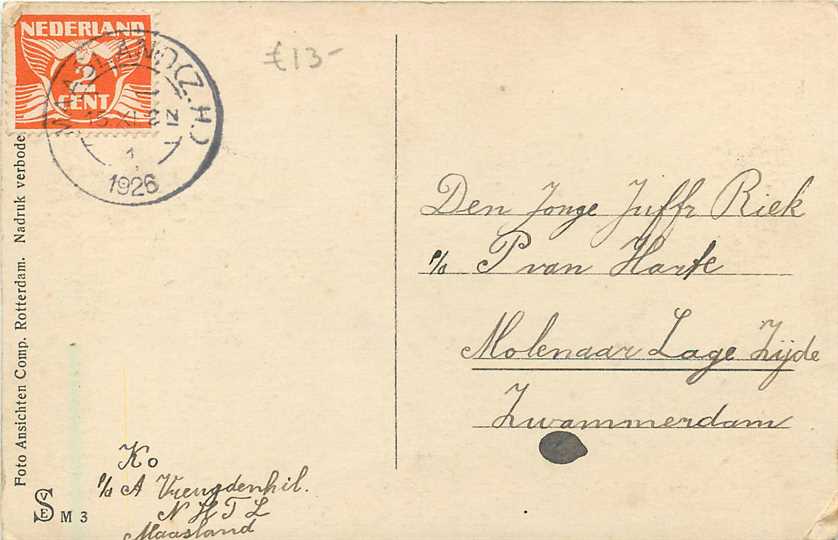 NEDERLAND
2
CENT
MAASLAND (Z.H.)
1926
£13-
Den Jonge Juffr Riek
p/a P van Harte
Molenaar Lage Zijde
Zwammerdam
Ko
p/a A Vreugdenhil.
N H T L
Maasland
Foto Ansichten Comp. Rotterdam. Nadruk verbode
VSE M 3